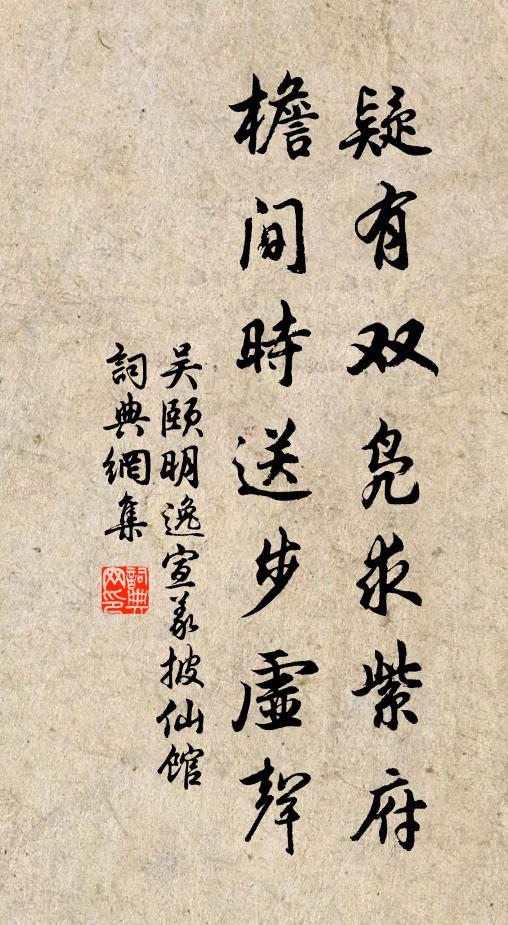 疑有双凫求紫府
檐间時送步虛聲
吴颐明逸宣義披仙館
詞典網集
詞典網印